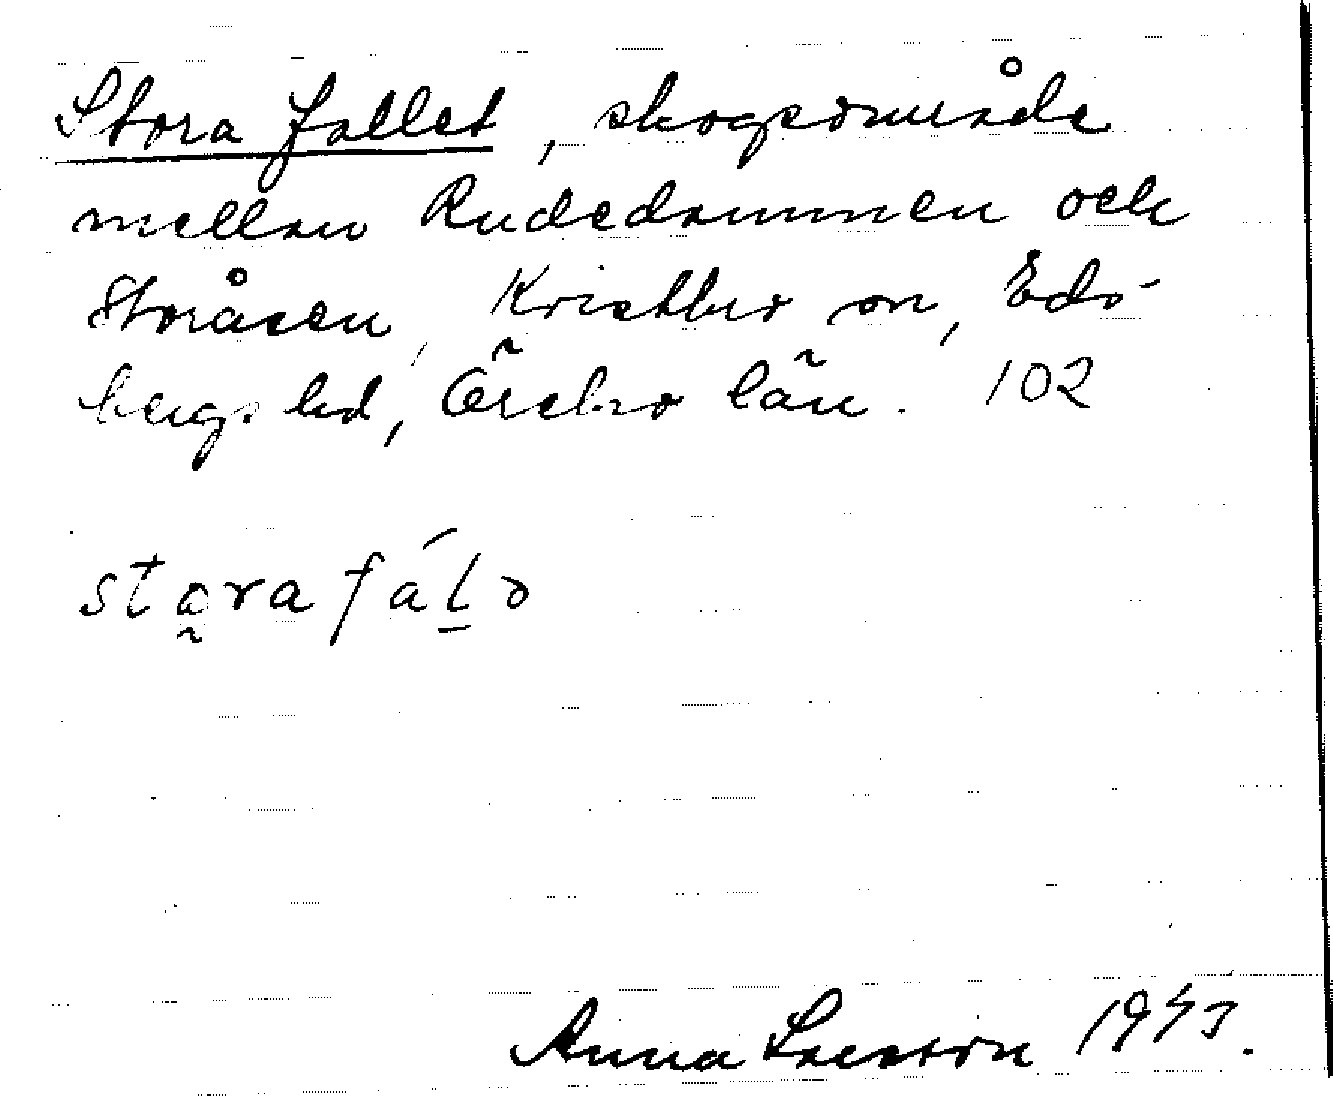 Stora fallet, skogsområde
mellan Rudedammen och
Storåsen, Kristbro om, Eds-
bergs hd, Örebro län. 102
stora fálə
Anna Larsson